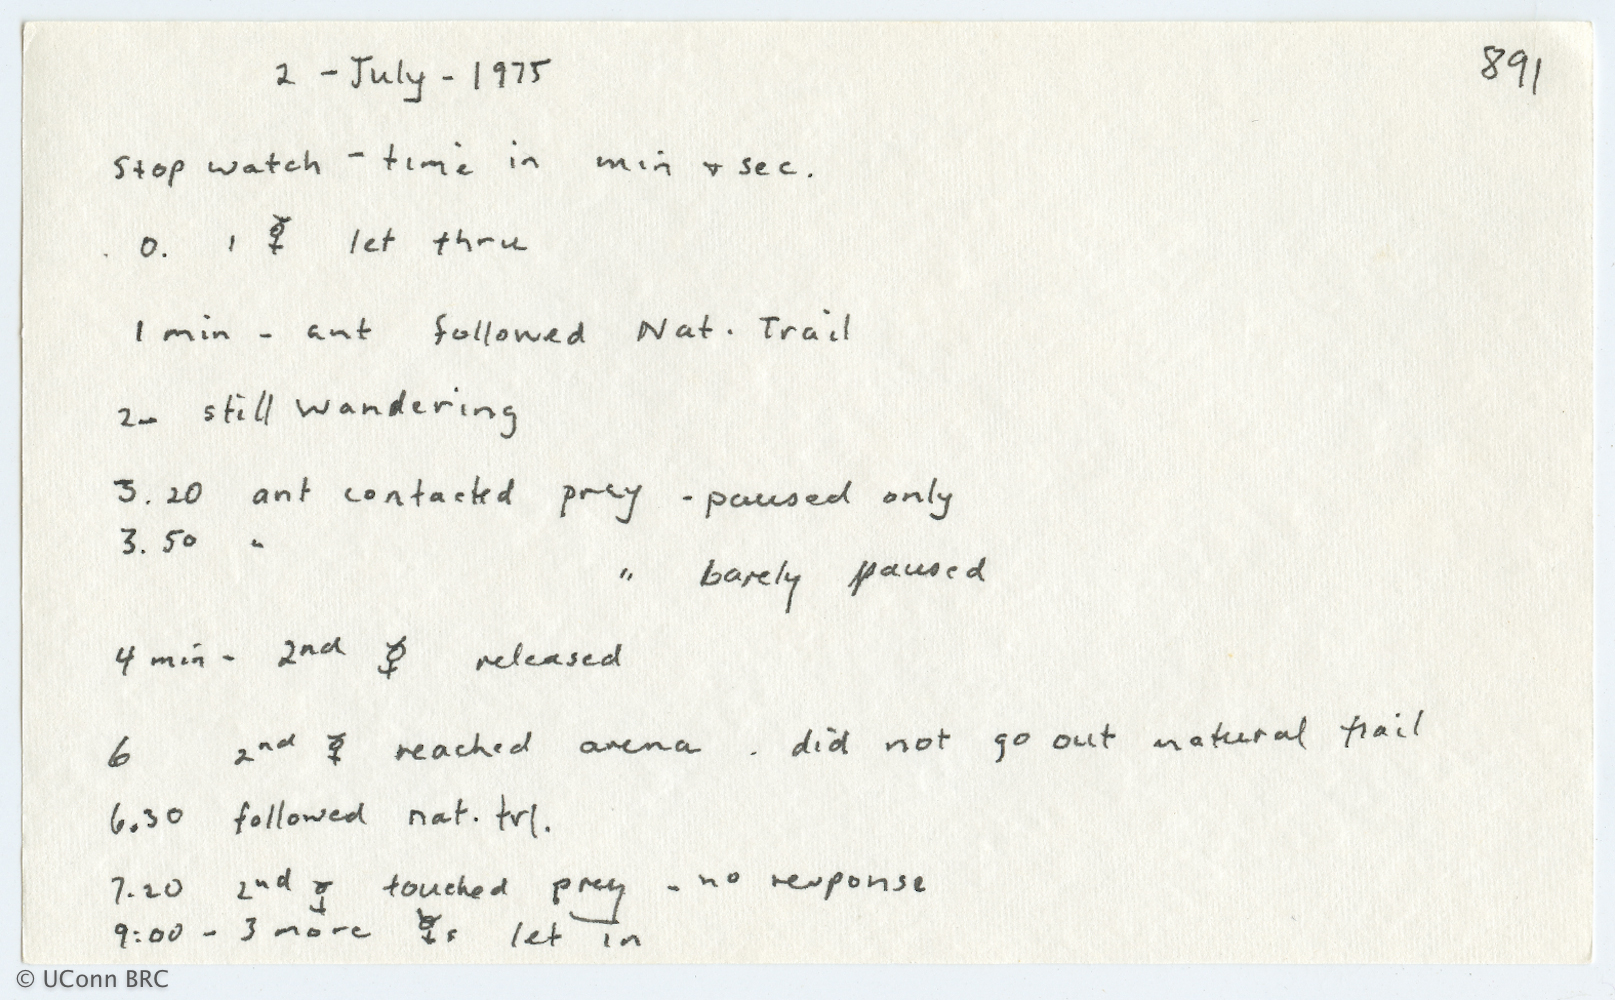 2 - July - 1975
891
Stop watch - time in min + sec.
0. 1 ☿ let thru
1 min - ant followed Nat. Trail
2- still wandering
3.20 ant contacted prey - paused only
3.50 "
" barely paused
4 min - 2nd ☿ released
6 2nd ☿ reached arena . did not go out natural trail
6.30 followed nat. trl.
7.20 2nd ☿ touched prey - no response
9:00 - 3 more ☿s let in
© UConn BRC